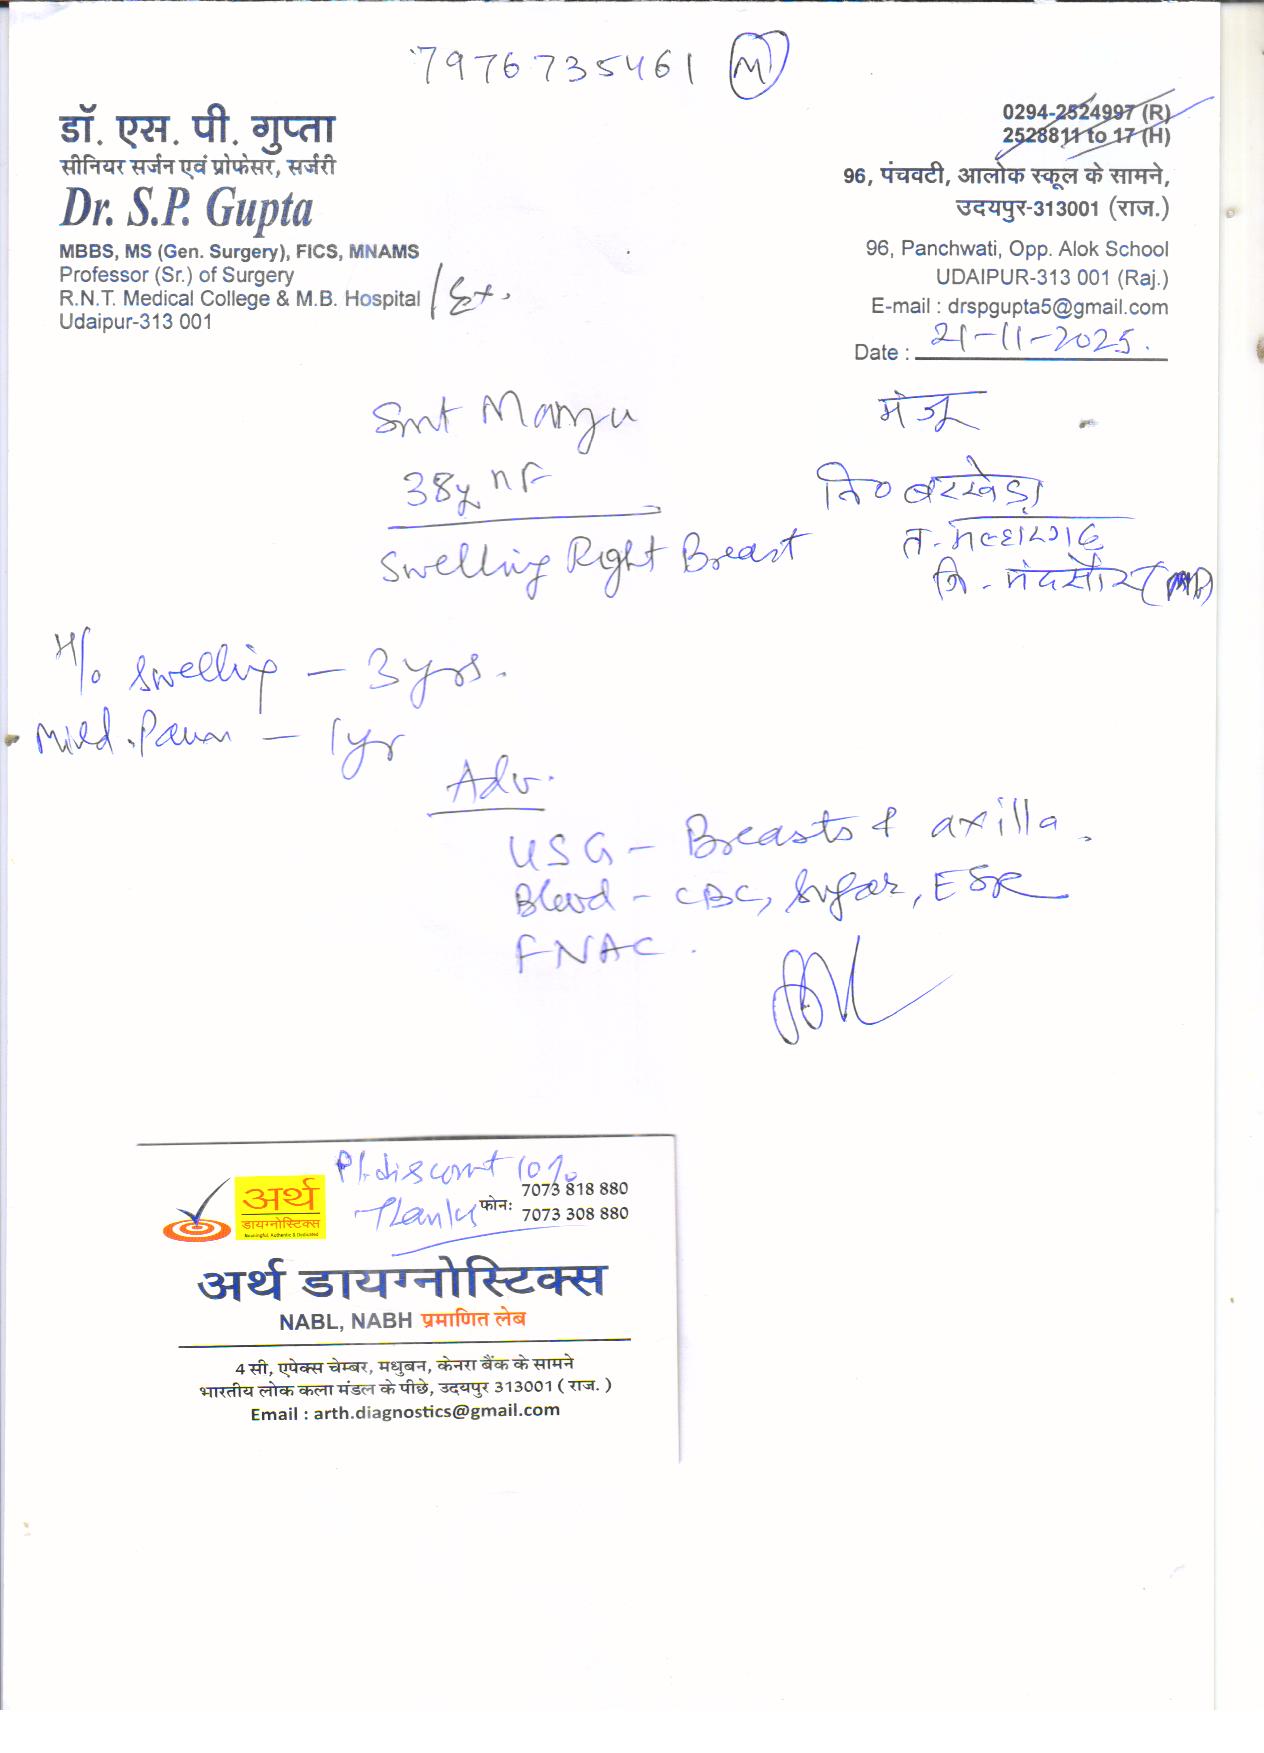 7976735461 (M)
डॉ. एस. पी. गुप्ता
सीनियर सर्जन एवं प्रोफेसर, सर्जरी
Dr. S.P. Gupta
MBBS, MS (Gen. Surgery), FICS, MNAMS
Professor (Sr.) of Surgery
R.N.T. Medical College & M.B. Hospital / Ex.
Udaipur-313 001
0294-2524997 (R)
2528811 to 17 (H)
96, पंचवटी, आलोक स्कूल के सामने,
उदयपुर-313001 (राज.)
96, Panchwati, Opp. Alok School
UDAIPUR-313 001 (Raj.)
E-mail : drspgupta5@gmail.com
Date : 21-11-2025.
Smt Manju
38y F
Swelling Right Breast
मंजू
नि० बरखेड़ा
त. मल्हारगढ़
जि. मंदसौर (MP)
H/o Swelling - 3 yrs.
Mild Pain - 1 yr
Adv.
USG - Breasts & axilla.
Blood - CBC, Sugar, ESR
FNAC.
Pl. discount 10%
Thanks
अर्थ
डायग्नोस्टिक्स
Meaningful, Authentic & Dedicated
फोन: 7073 818 880
7073 308 880
अर्थ डायग्नोस्टिक्स
NABL, NABH प्रमाणित लेब
4 सी, एपेक्स चेम्बर, मधुबन, केनरा बैंक के सामने
भारतीय लोक कला मंडल के पीछे, उदयपुर 313001 ( राज. )
Email : arth.diagnostics@gmail.com